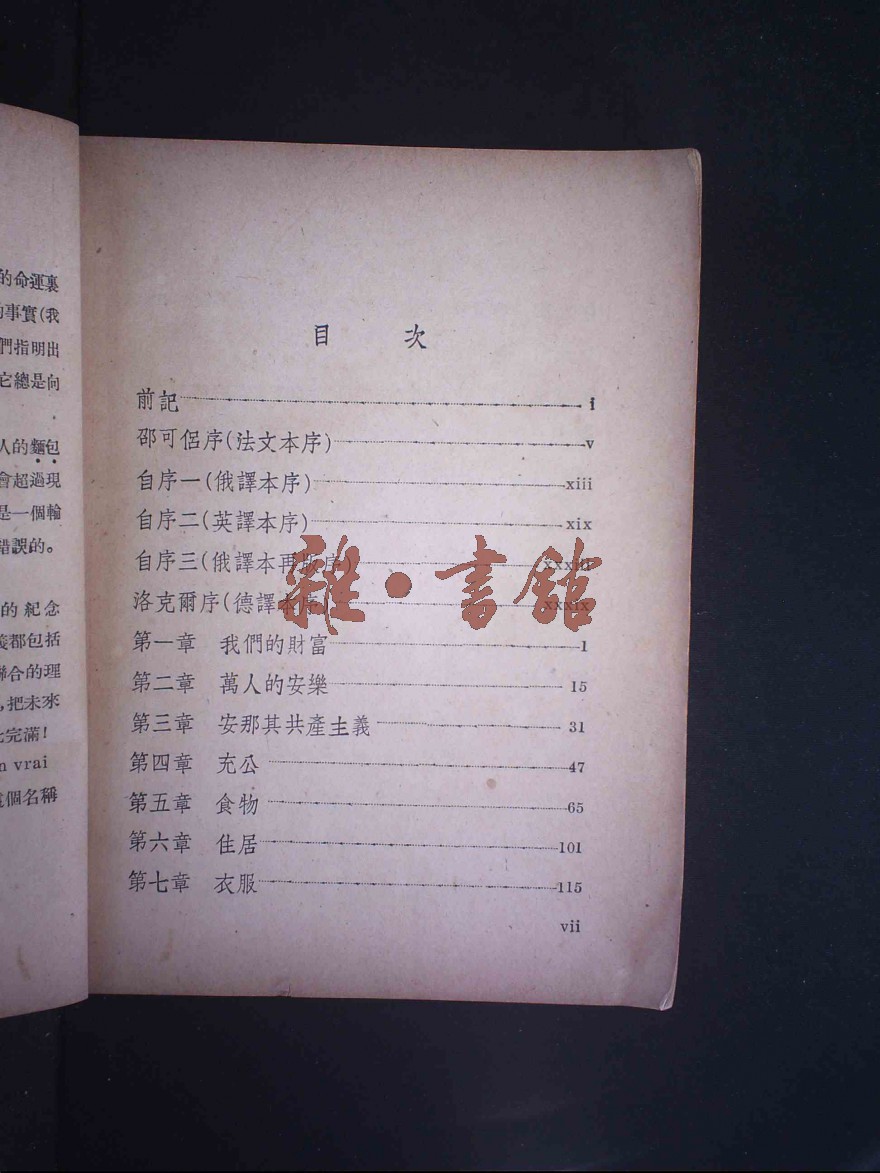 的命運裏
的事實(我
們指明出
它總是向
人的麵包
會超過現
是一個輪
錯誤的。
的紀念
義都包括
聯合的理
,把未來
完滿!
n vrai
這個名稱
目 次
前記 i
邵可侶序(法文本序) v
自序一(俄譯本序) xiii
自序二(英譯本序) xix
自序三(俄譯本再版序) xxxiii
洛克爾序(德譯本序) xxxix
第一章 我們的財富 1
第二章 萬人的安樂 15
第三章 安那其共產主義 31
第四章 充公 47
第五章 食物 65
第六章 住居 101
第七章 衣服 115
vii
雜·書館